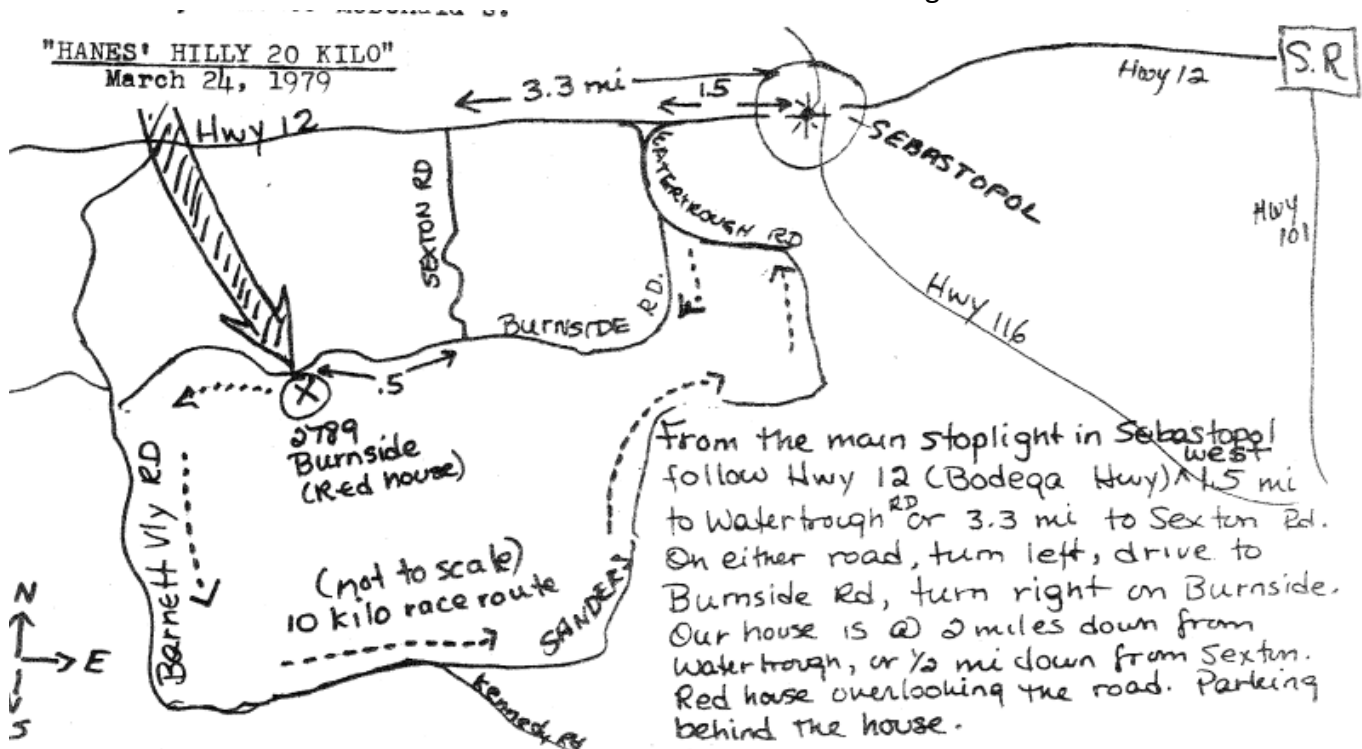 "HANES' HILLY 20 KILO"
March 24, 1979
3.3 mi
1.5
Hwy 12
S.R
Hwy 12
SEBASTOPOL
WATERTROUGH RD
SEXTON RD
Hwy 101
BURNSIDE RD.
Hwy 116
.5
X
2789
Burnside
(Red house)
Barnett Vly RD
(not to scale)
10 kilo race route
SANDERS
Kennedy Rd
N
E
S
From the main stoplight in Sebastopol
follow Hwy 12 (Bodega Hwy) ^west 1.5 mi
to Watertrough RD or 3.3 mi to Sexton Rd.
On either road, turn left, drive to
Burnside Rd, turn right on Burnside.
Our house is @ 2 miles down from
Watertrough, or ½ mi down from Sexton.
Red house overlooking the road. Parking
behind the house.